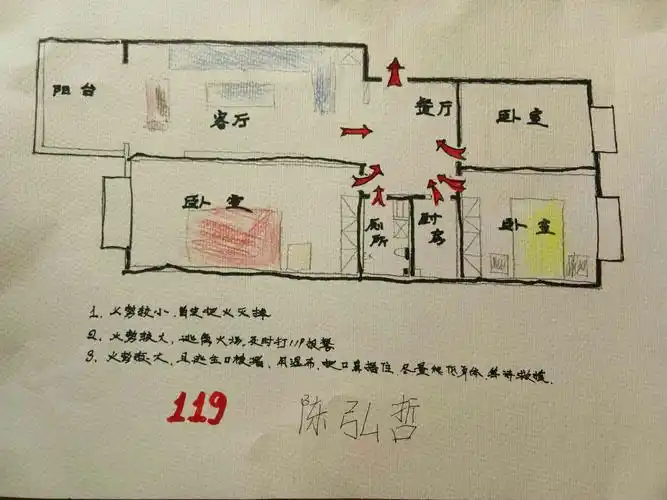 阳台
客厅
餐厅
卧室
卧室
厕所
厨房
卧室
1、火势较小,首先把火灭掉
2、火势较大,逃离火场,及时打119报警
3、火势较大,且逃生口被堵、用湿布,把口鼻捂住,尽量放低身体,等待救援.
119
陈弘哲